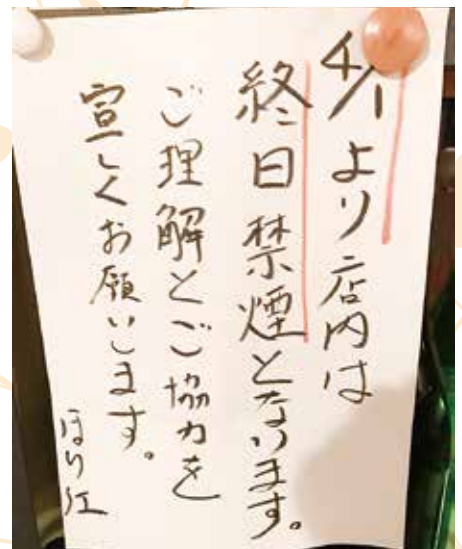 4/1より店内は
終日禁煙となります。
ご理解とご協力を
宜しくお願いします。
ほり江